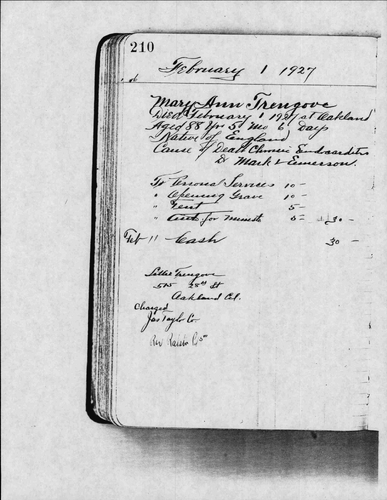 210
February 1 1927
Mary Ann Trengove
Died February 1 1927 at Oakland
Aged 88 Yrs 5 Mo 6 Days
Native of England
Cause of Death Chronic Endocarditis
Dr Mark L Emerson.
To Personal Services 10 -
" Opening Grave 10 -
" Tent 5 -
" Auto for Minister 5 - 30 -
Feb 11 Cash 30 -
Lillie Trengove
28th St
Oakland Cal.
Charged
Jas Taylor Co
Rev